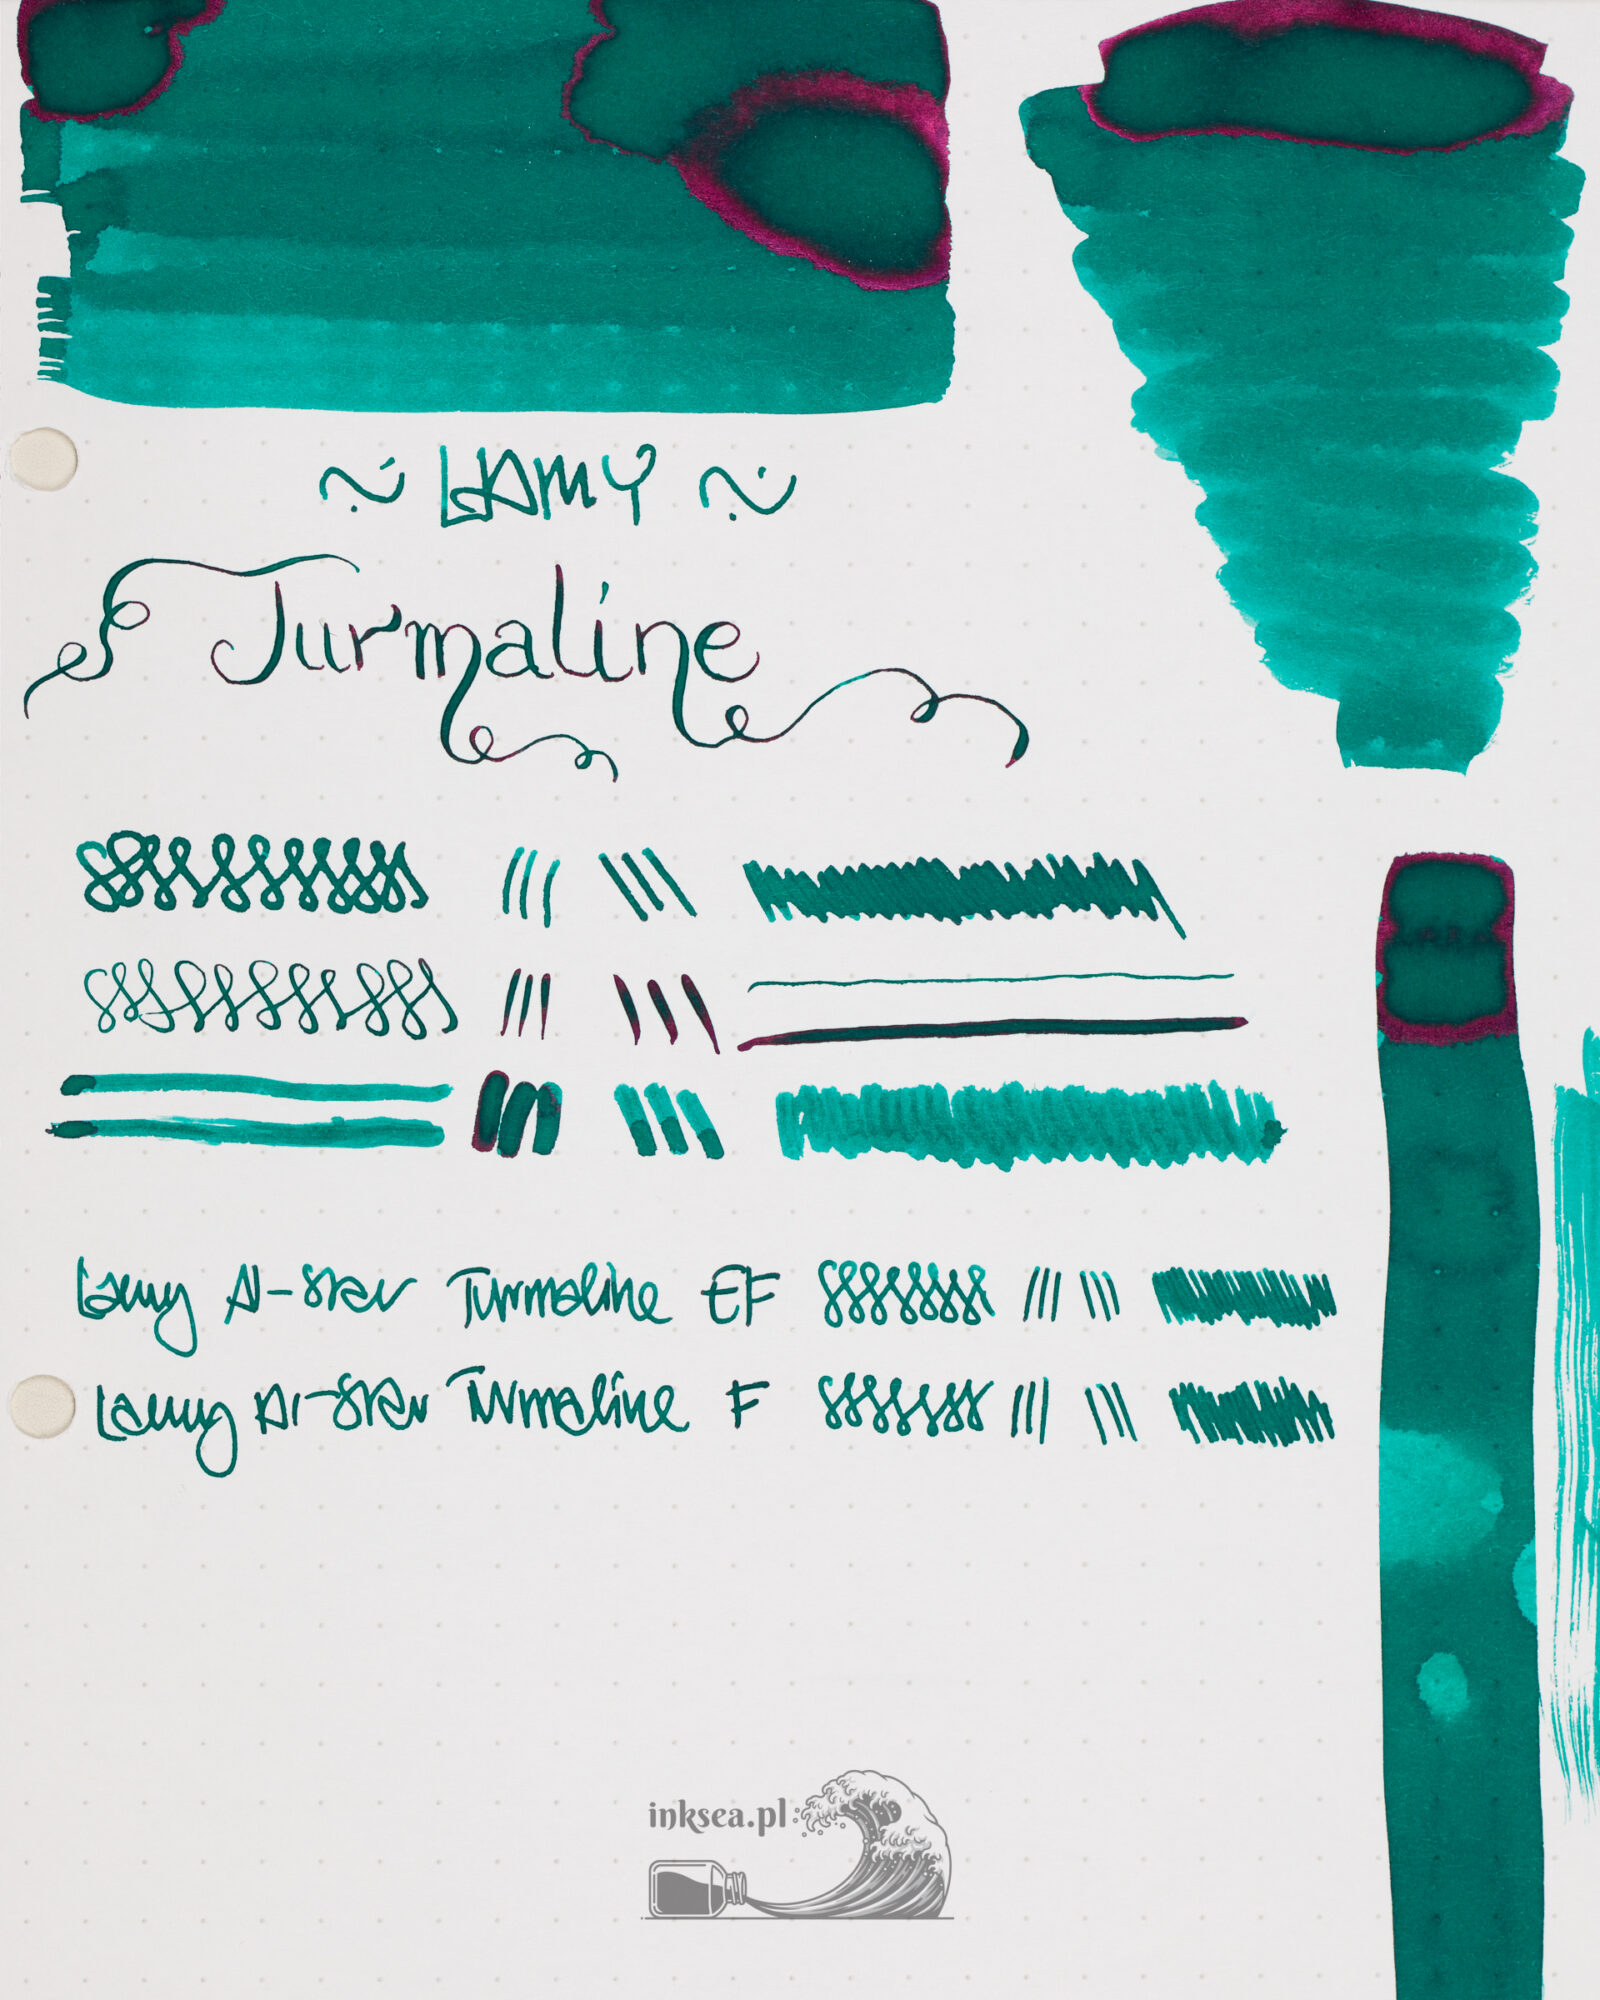 ~ LAMY ~
Turmaline
Lamy Al-Star Turmaline EF
Lamy Al-Star Turmaline F
inksea.pl